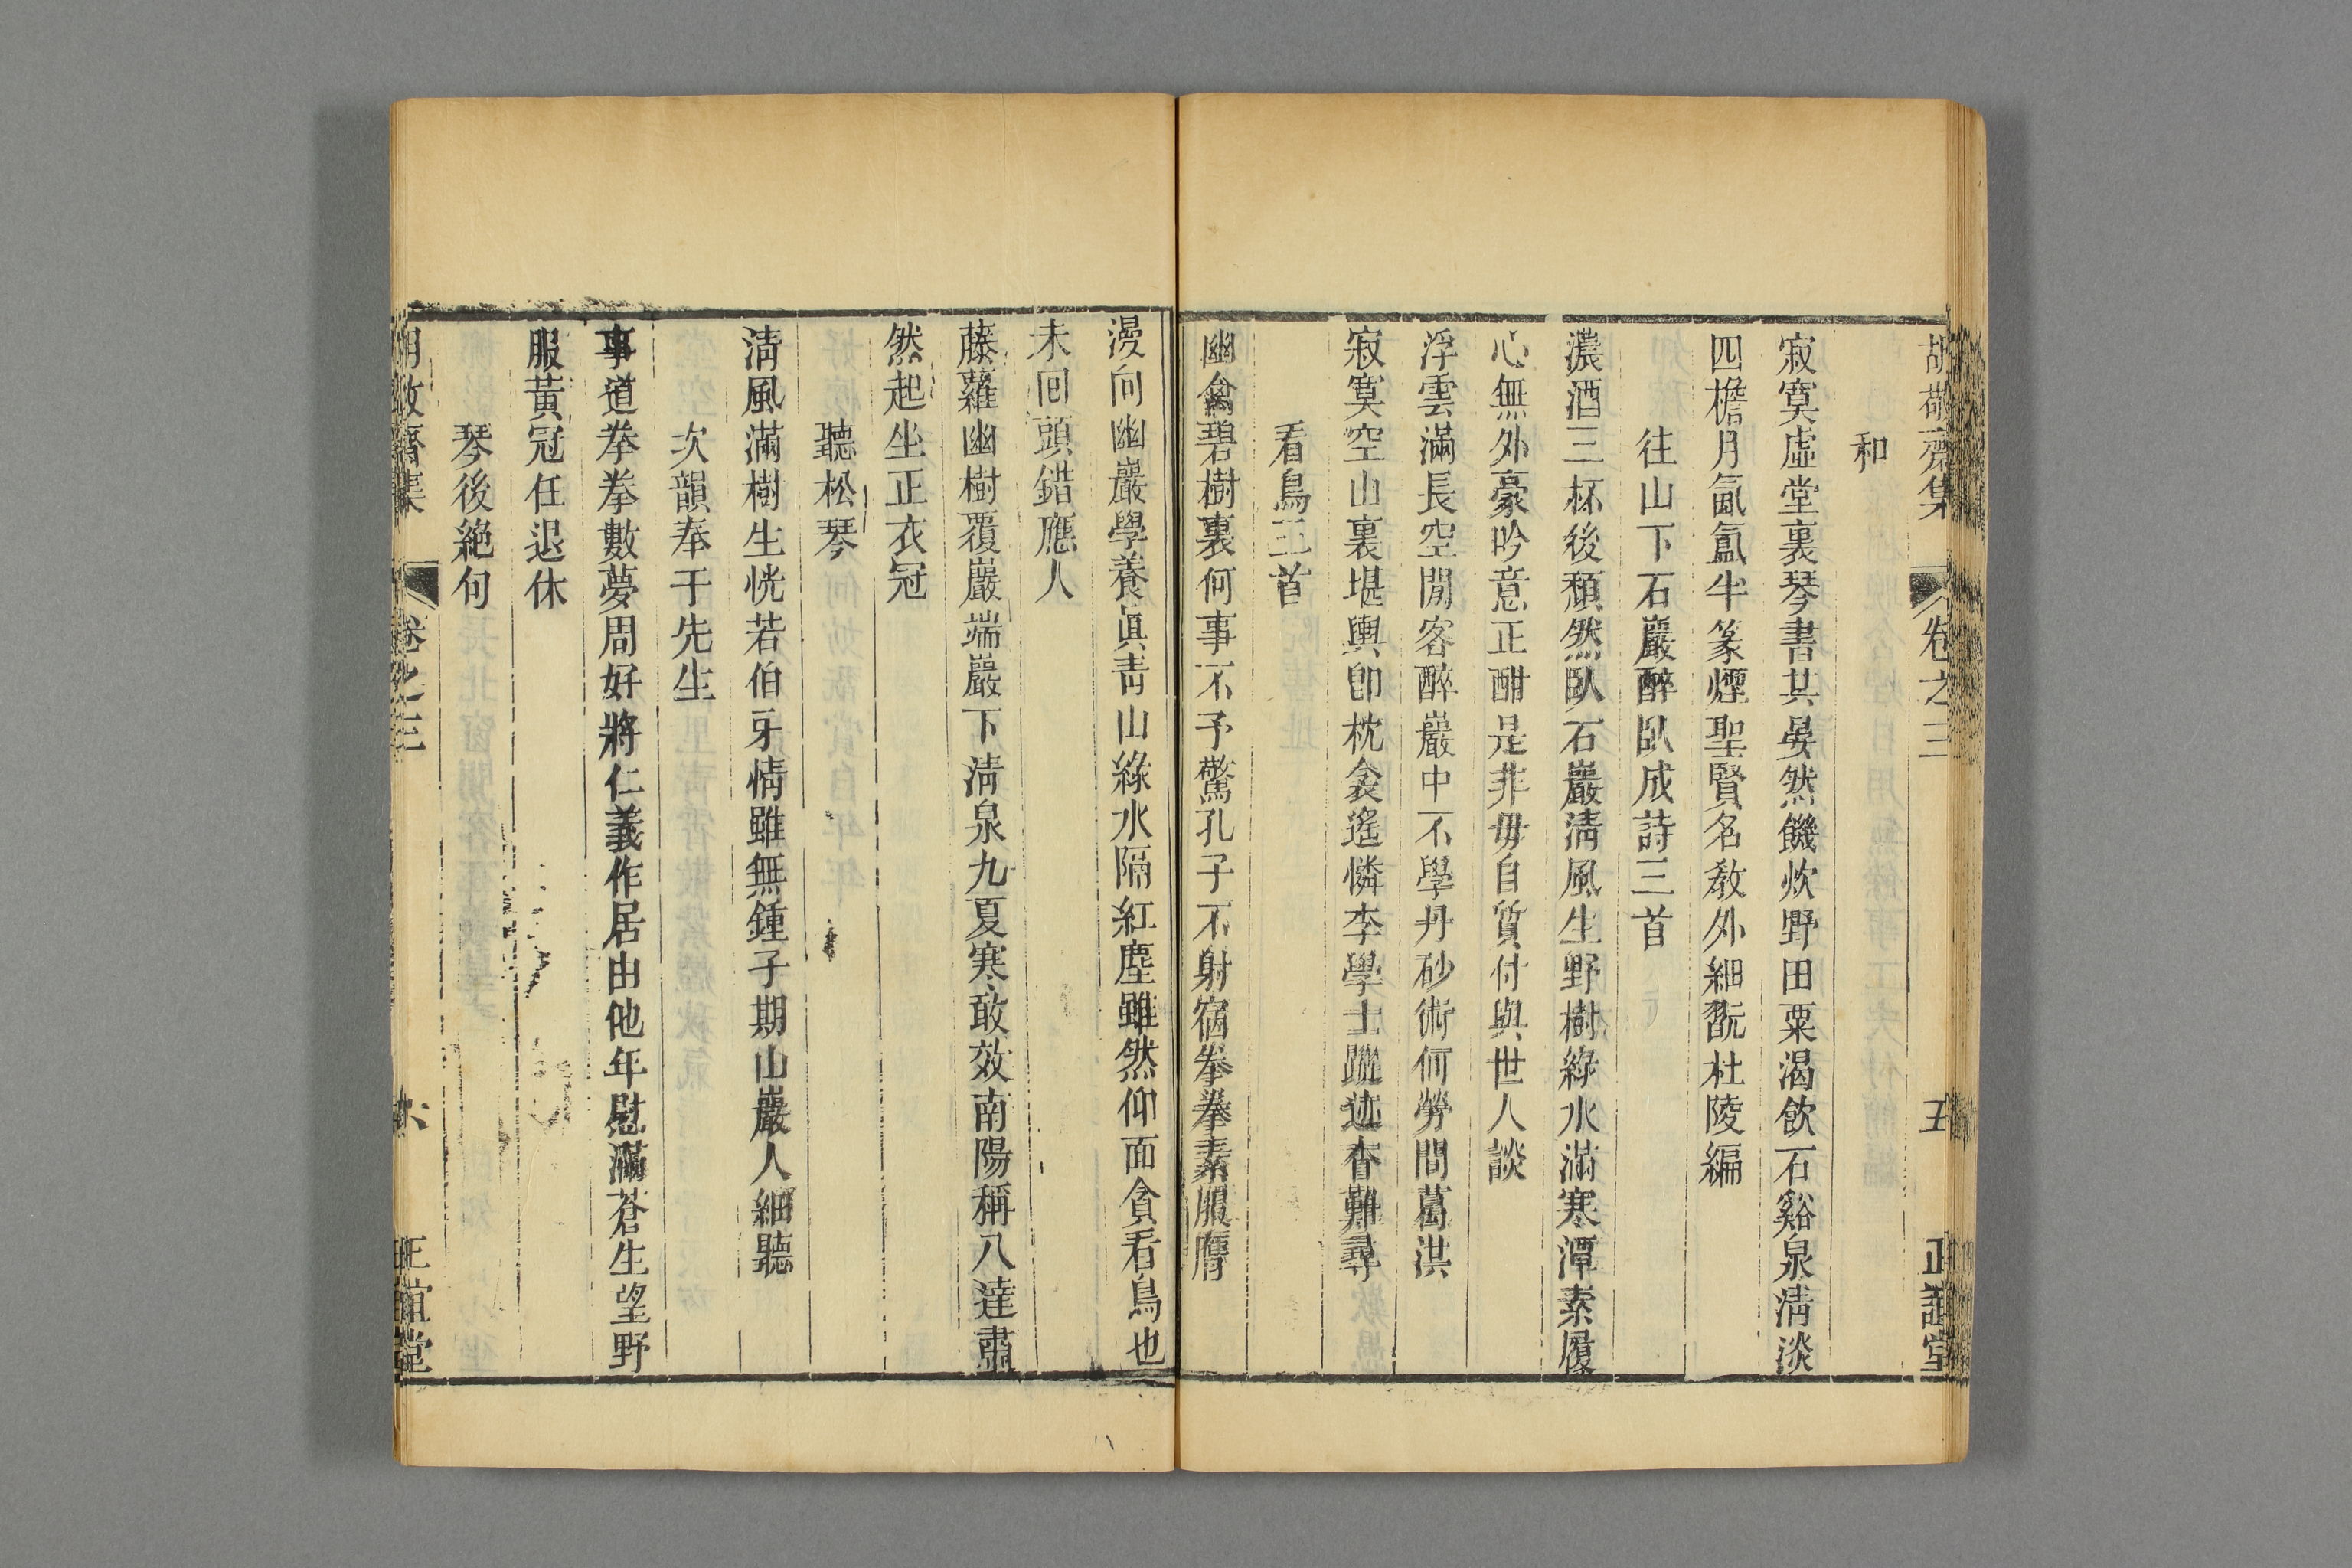 胡敬齋集 卷之三 五 正誼堂
和
寂寞虛堂裏琴書共晏然饑炊野田粟渴飲石谿泉淸淡
四檐月氤氳半篆煙聖賢名敎外細翫杜陵編
往山下石巖醉臥成詩三首
濃酒三杯後頹然臥石巖淸風生野樹綠水滿寒潭素履
心無外豪吟意正酣是非毋自質付與世人談
浮雲滿長空閒客醉巖中不學丹砂術何勞問葛洪
寂寞空山裏堪輿卽枕衾遙憐李學士蹤迹杳難尋
看鳥三首
幽禽碧樹裏何事不予驚孔子不射宿拳拳素服膺
漫向幽巖學養眞靑山綠水隔紅塵雖然仰面貪看鳥也
未回頭錯應人
藤蘿幽樹覆巖端巖下淸泉九夏寒敢效南陽稱八達肅
然起坐正衣冠
聽松琴
淸風滿樹生恍若伯牙情雖無鍾子期山巖人細聽
次韻奉于先生
事道拳拳數夢周好將仁義作居由他年慰滿蒼生望野
服黃冠任退休
琴後絕句
胡敬齋集 卷之三 六 正誼堂